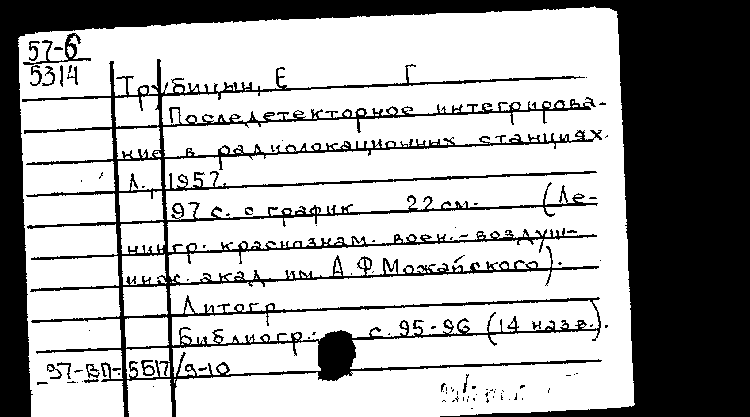 57-6
5314
Трубицын, Е Г
Последетекторное интегрирова-
ние в радиолокационных станциях.
Л., 1957.
97 с. с график 22 см. (Ле-
нингр. краснознам. воен.-воздуш-
ная акад. им. А.Ф.Можайского).
Литогр.
Библиогр.: с. 95-96 (14 назв.).
57-ВП-5517/9-10